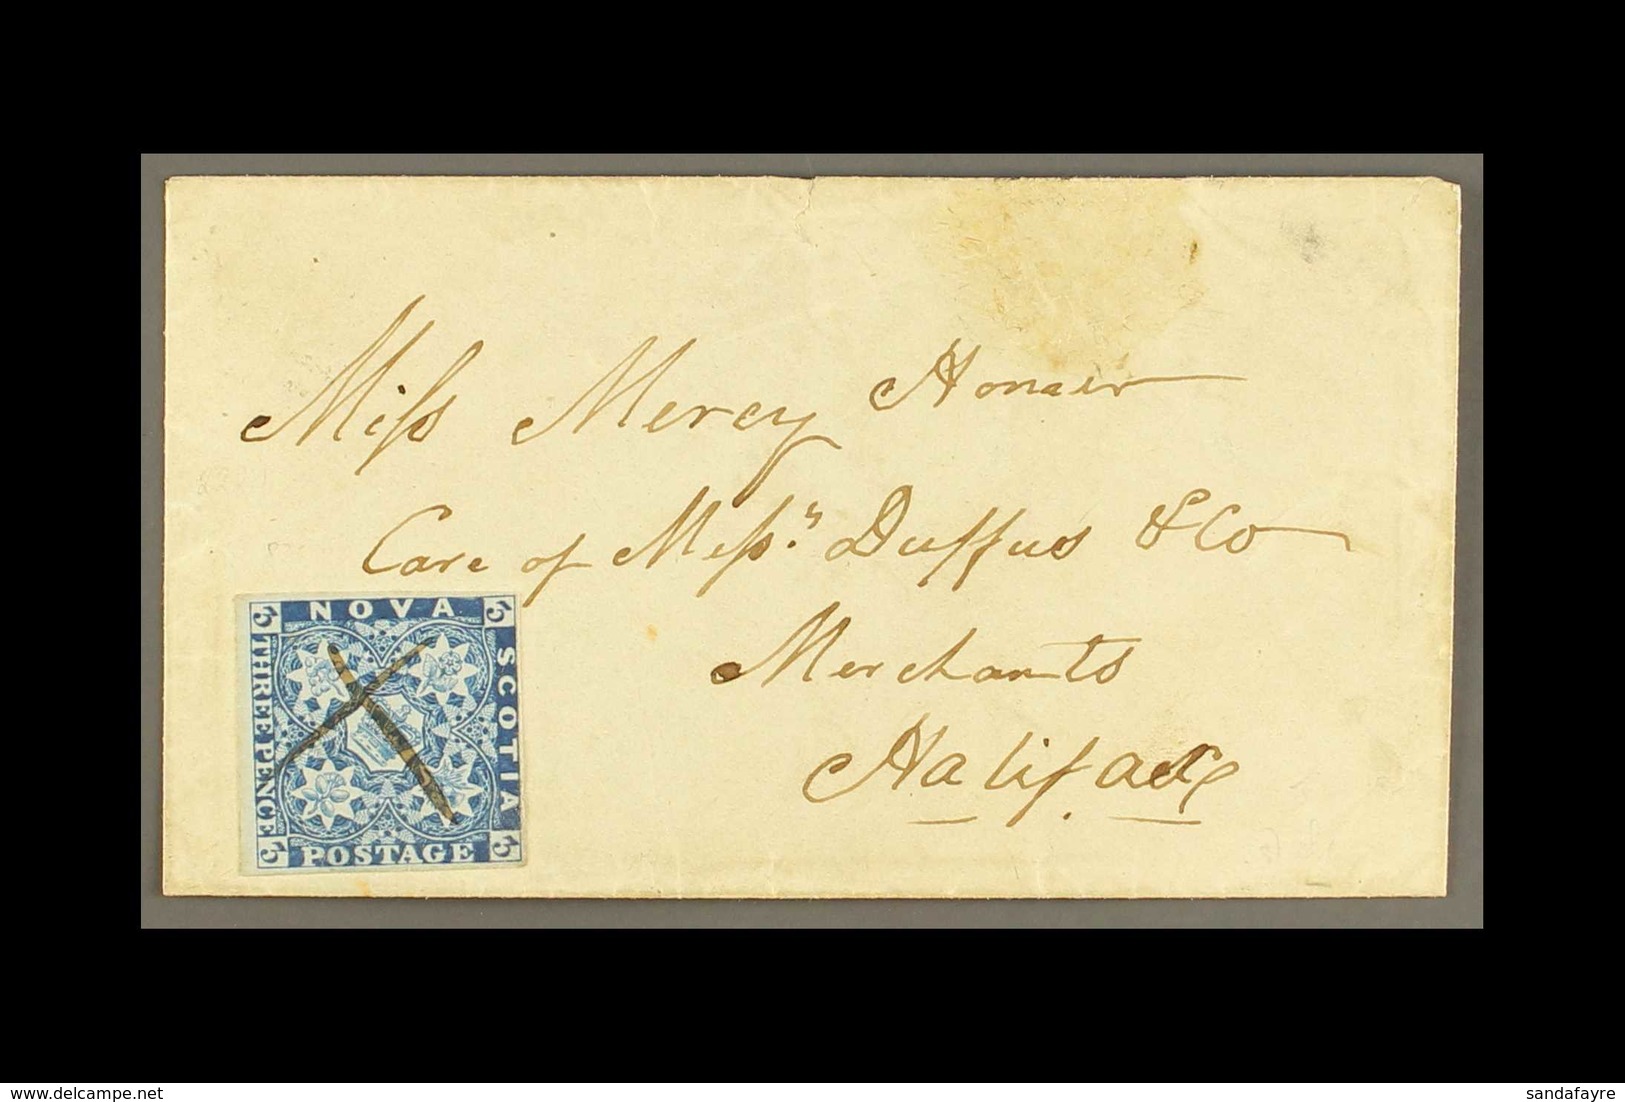 Miss Mercy Homer
Care of Mess.rs Duffus & Co
Merchants
Halifax
NOVA
SCOTIA
THREE PENCE
POSTAGE
3
3
3
3
delcampe.net
sandafayre